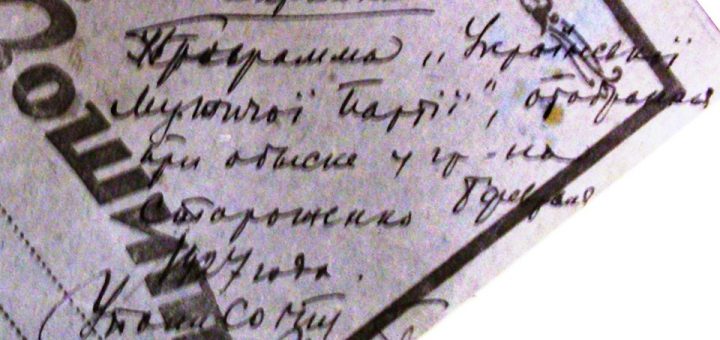 Программа „Української
Мужичої Партії", отобранная
при обыске у гр-на
Стороженко 8 февраля
1927 года.